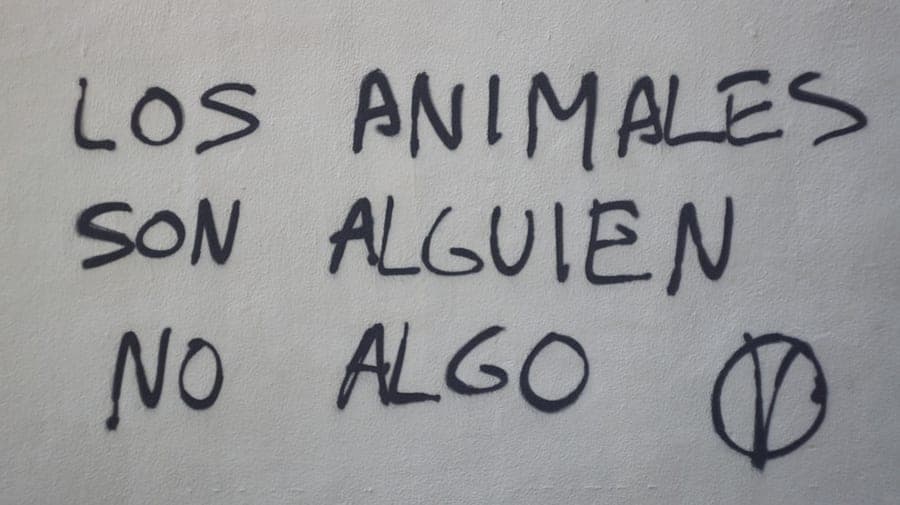 LOS ANIMALES
SON ALGUIEN
NO ALGO